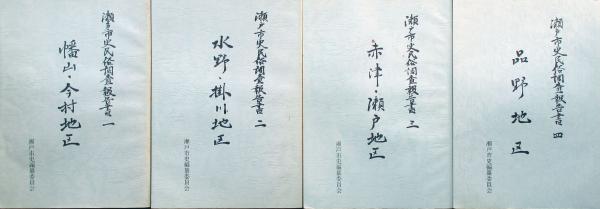 瀬戸市史民俗調査報告書 一
幡山・今村地区
瀬戸市史編纂委員会
瀬戸市史民俗調査報告書 二
水野・掛川地区
瀬戸市史編纂委員会
瀬戸市史民俗調査報告書 三
赤津・瀬戸地区
瀬戸市史編纂委員会
瀬戸市史民俗調査報告書 四
品野地区
瀬戸市史編纂委員会